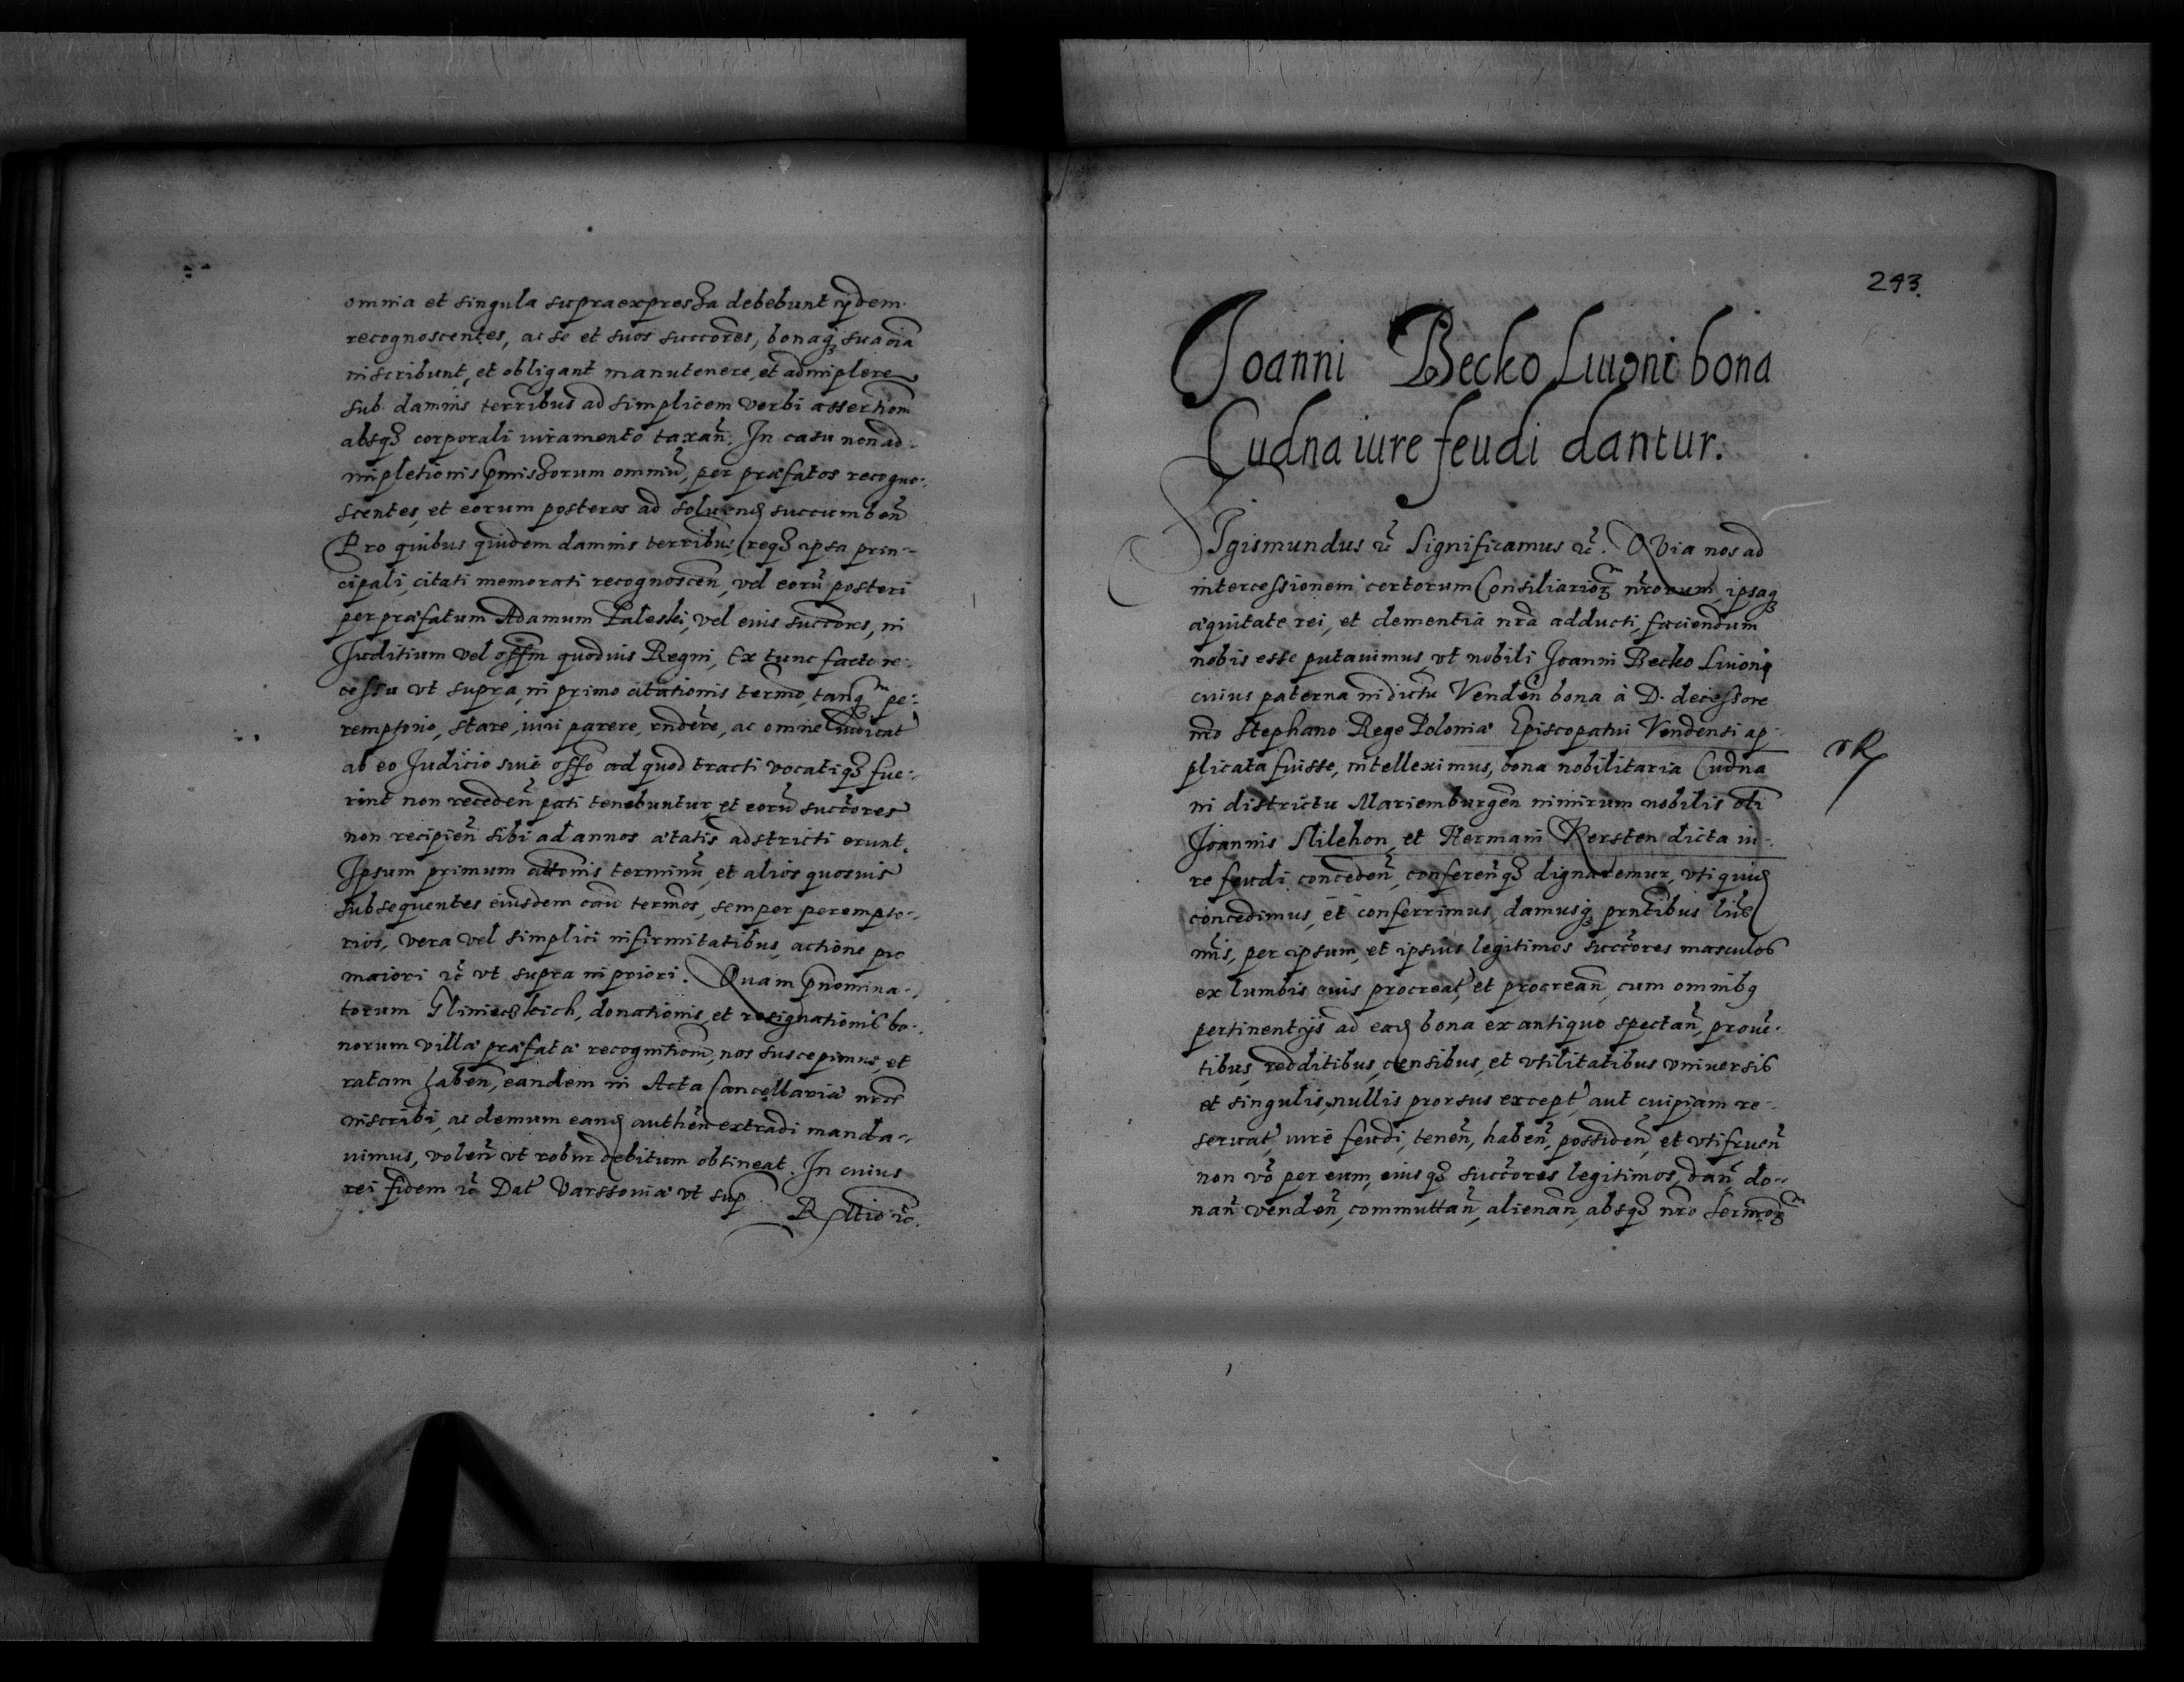 omnia et singula supraexpressa debebunt ijdem
recognoscentes, ac se et suos succōres, bonaq₃ sua oīa
inscribunt, et obligant manutenere, et adimplere
sub damnis terrībus ad simplicem verbi assertionem
absq₃ corporali iuramento taxan̄. In casu non ad-
impletionis p̄missorum omniū, per præfatos recogno-
scentes, et eorum posteros ad soluend succumben̄
Pro quibus quidem damnis terribus, req₃ ipsa prin-
cipali, citati memorati recognoscen̄, vel eorū posteri
per præfatum Adamum Paleski, vel eius succōres, in
Juditium vel offm̄ quoduis Regni, Ex tunc facto re-
cessu vt supra, in primo citationis termō, tanq₃ pe-
remptorio, stare, iuri parere, rn̄dēre, ac omne iudicat
ab eo Judicio siue offō ad quod tracti vocatiq₃ fue-
rint non receden̄ pati tenebuntur, et eorū succōres
non recipien̄ sibi ad annos ætatis adstricti erunt.
Ipsum primum attōnis terminū, et alios quosuis
subsequentes eiusdem cāu termōs, semper perempto-
rios, vera vel simplici infirmitatibus, actione pro
maiori rc̄ vt supra in priori. Quam p̄nomina-
torum Gliniecskich, donationis, et resignationis bo-
norum villæ præfatæ recognitionem, nos suscepimus, et
ratam haben̄, eandem in Acta Cancellariæ nr̄æ
inscribi, ac demum eand authēn extradi manda-
uimus, volen̄ vt robur debitum obtineat. In cuius
rei fidem rc̄ Dat Varssouiæ vt sup
Rltio rc̄.
243.
Joanni Becko Liuoni bona
Cudna iure feudi dantur.
SIgismundus rc̄ Significamus rc̄. QVia nos ad
intercessionem certorum Consiliarioꝝ nr̄orum, ipsaq₃
æquitate rei, et clementia nr̄a adducti, faciendum
nobis esse putauimus, vt nobili Joanni Becko Liuoni,
cuius paterna in dictu Venden̄ bona à D. decessore
nr̄o Stephano Rege Poloniæ Episcopatui Vendensi ap-
plicata fuisse, intelleximus, bona nobilitaria Cudna
in districtu Mariemburgen̄ nimirum nobilis oti
Joannis Nilehon, et Hermani Kersten dicta iu-
re feudi conceden̄, conferen̄q₃ dignaremur, vti quid
concedimus, et conferrimus, damusq₃ prn̄tibus lr̄is
nr̄is, per ipsum, et ipsius legitimos succōres masculos
ex lumbis eius procreat, et procrean̄, cum omnibq
pertinentijs ad ead bona ex antiquo spectan̄, prouē-
tibus, redditibus, censibus, et vtilitatibus vniuersis
et singulis, nullis prorsus except, aut cuipiam re-
seruat, iure feudi, tenen̄, haben̄, possiden̄, et vtifruen̄
non vō per eum, eiusq₃ succōres legitimos, dan̄, do-
nan̄ venden̄, commuttan̄, alienan̄, absq₃ nr̄o Sermoꝝ